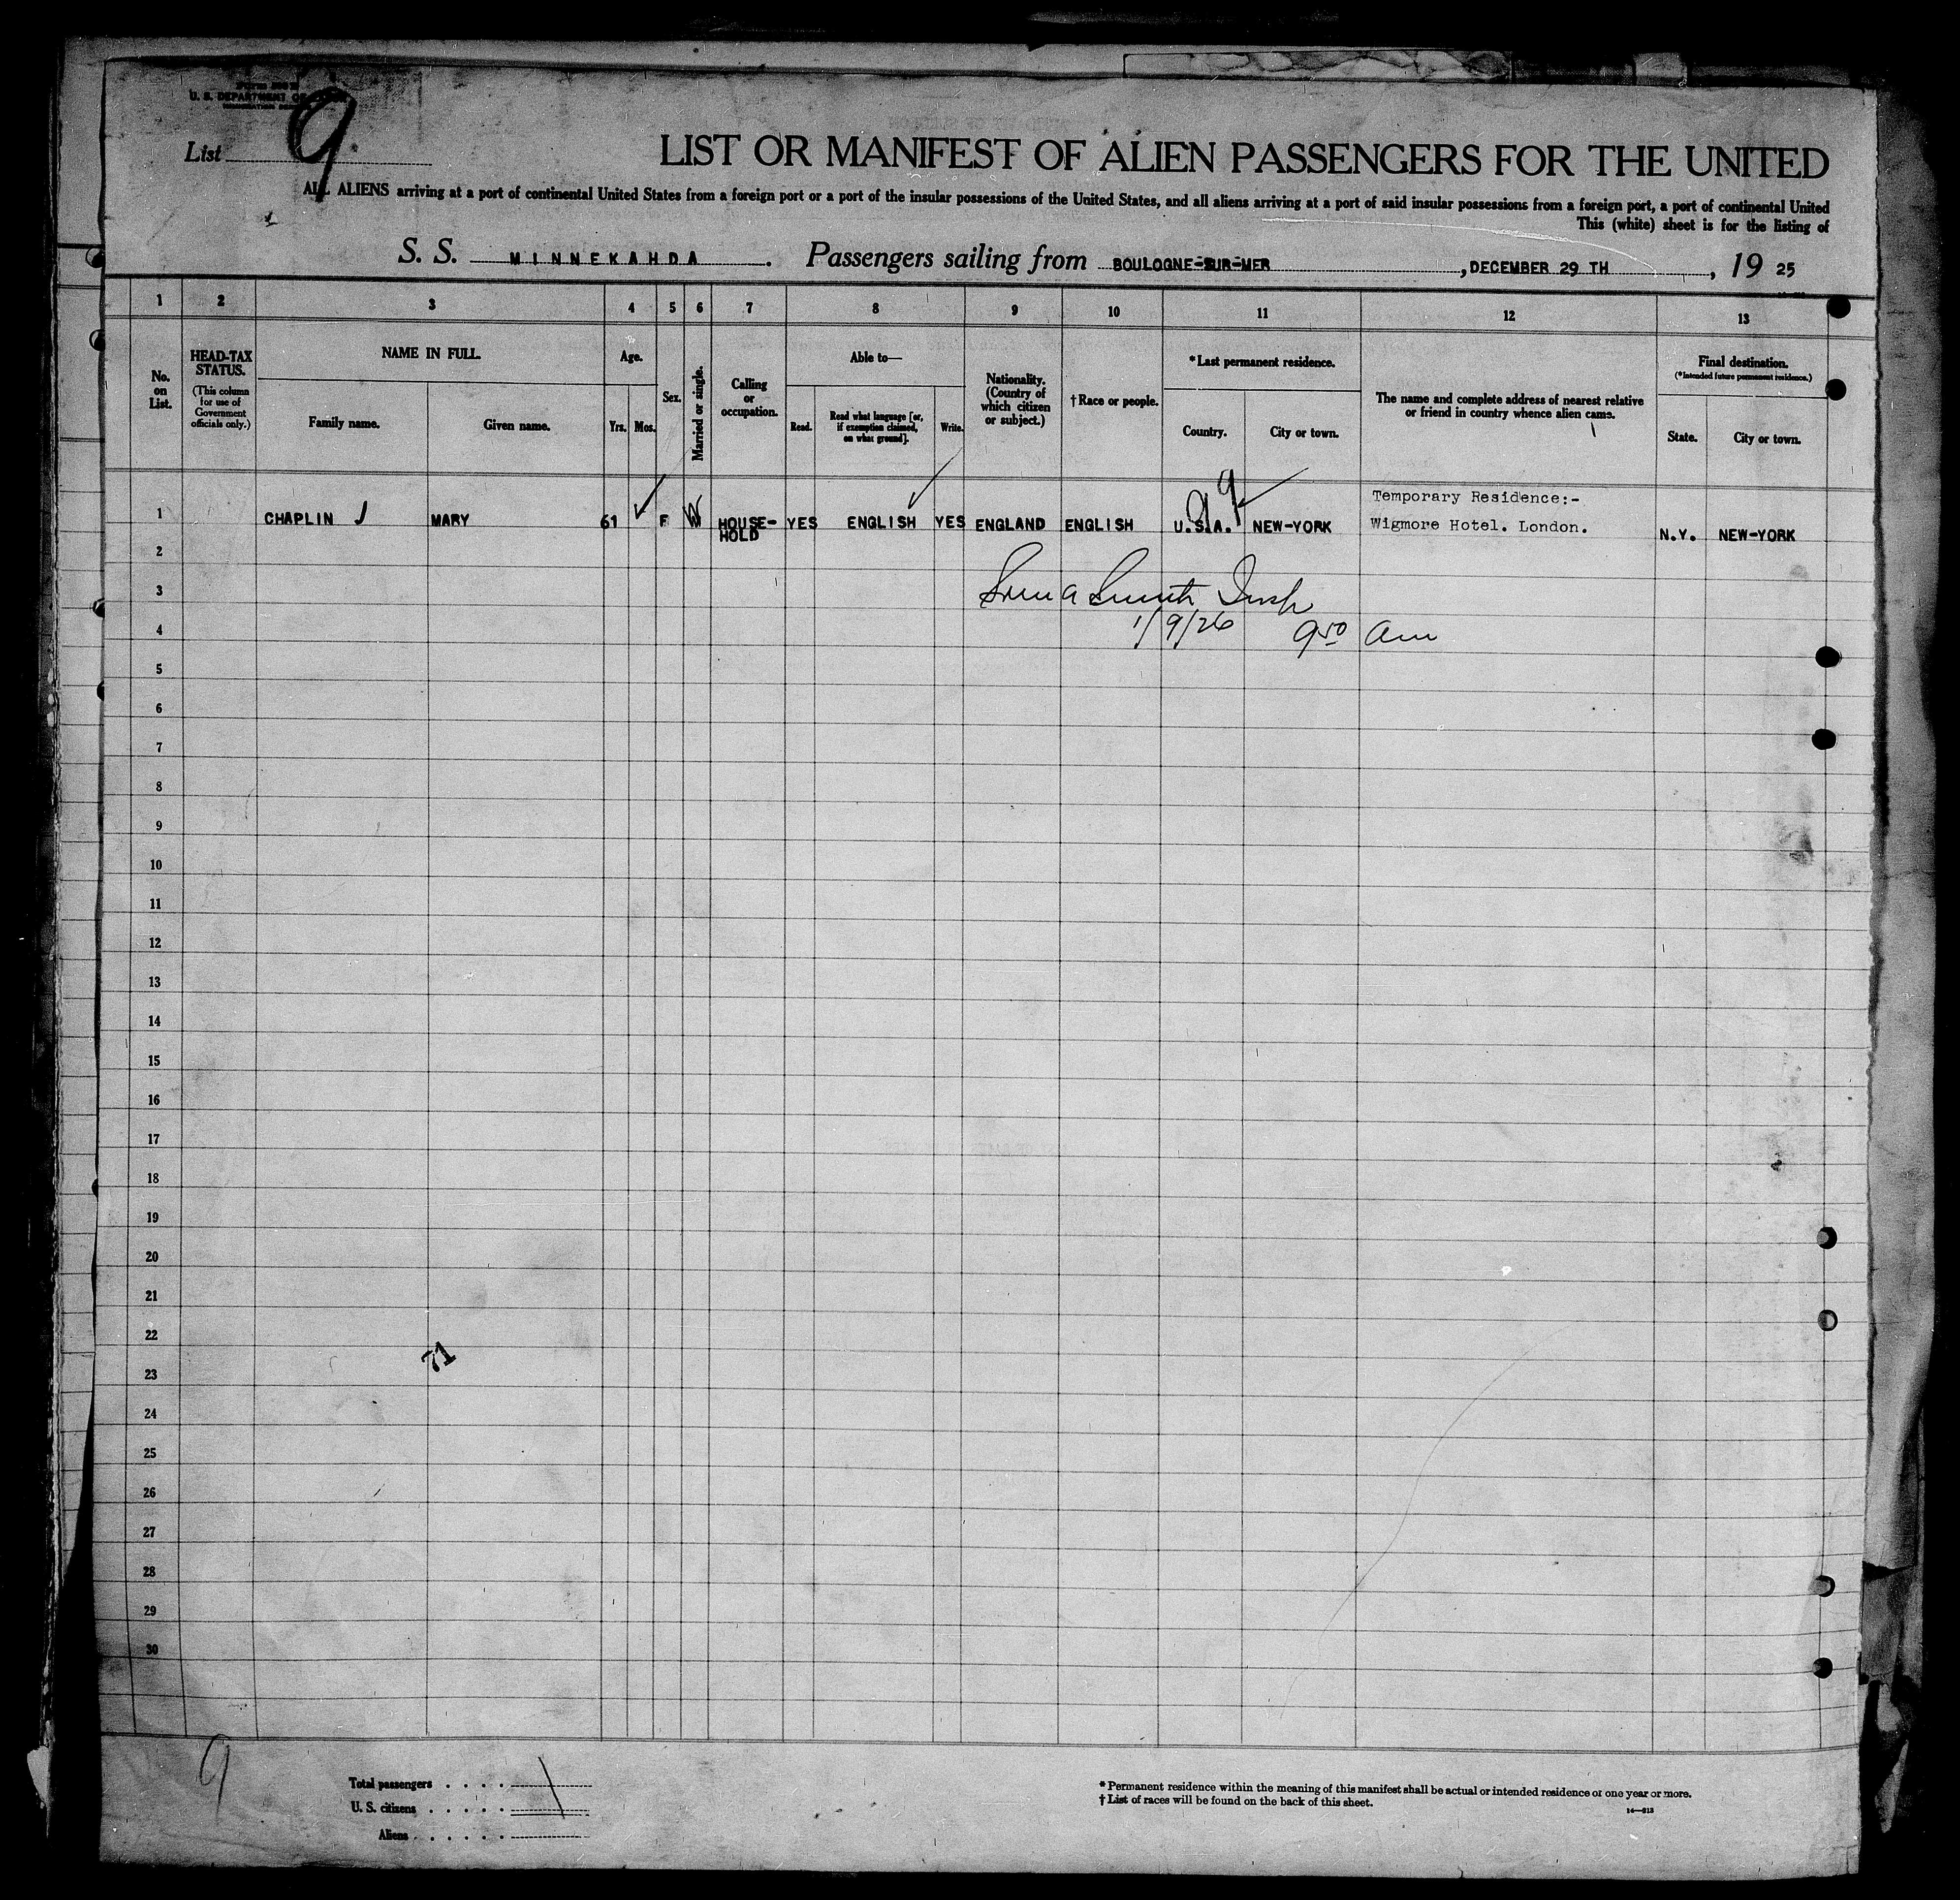 U. S. DEPARTMENT OF
List 9
LIST OR MANIFEST OF ALIEN PASSENGERS FOR THE UNITED
ALL ALIENS arriving at a port of continental United States from a foreign port or a port of the insular possessions of the United States, and all aliens arriving at a port of said insular possessions from a foreign port, a port of continental United
This (white) sheet is for the listing of
S. S. MINNEKAHDA. Passengers sailing from BOULOGNE-SUR-MER, DECEMBER 29 TH, 19 25
1 2 3 4 5 6 7 8 9 10 11 12 13
No. on List.
HEAD-TAX STATUS.
(This column for use of Government officials only.)
NAME IN FULL.
Family name. Given name.
Age.
Yrs. Mos.
Sex.
Married or single.
Calling or occupation.
Able to—
Read. Read what language [or, if exemption claimed, on what ground]. Write.
Nationality. (Country of which citizen or subject.)
†Race or people.
*Last permanent residence.
Country. City or town.
The name and complete address of nearest relative or friend in country whence alien came.
Final destination.
(*Intended future permanent residence.)
State. City or town.
99
Temporary Residence:-
1 CHAPLIN J MARY 61 F W HOUSE-HOLD YES ENGLISH YES ENGLAND ENGLISH U.S.A. NEW-YORK Wigmore Hotel. London. N.Y. NEW-YORK
2
3 Smith Insp
4 1/9/26 9 50 am
5
6
7
8
9
10
11
12
13
14
15
16
17
18
19
20
21
22
71
23
24
25
26
27
28
29
30
9
Total passengers . . . .
U. S. citizens . . . . .
Aliens . . . . . .
*Permanent residence within the meaning of this manifest shall be actual or intended residence of one year or more.
†List of races will be found on the back of this sheet.
14—313